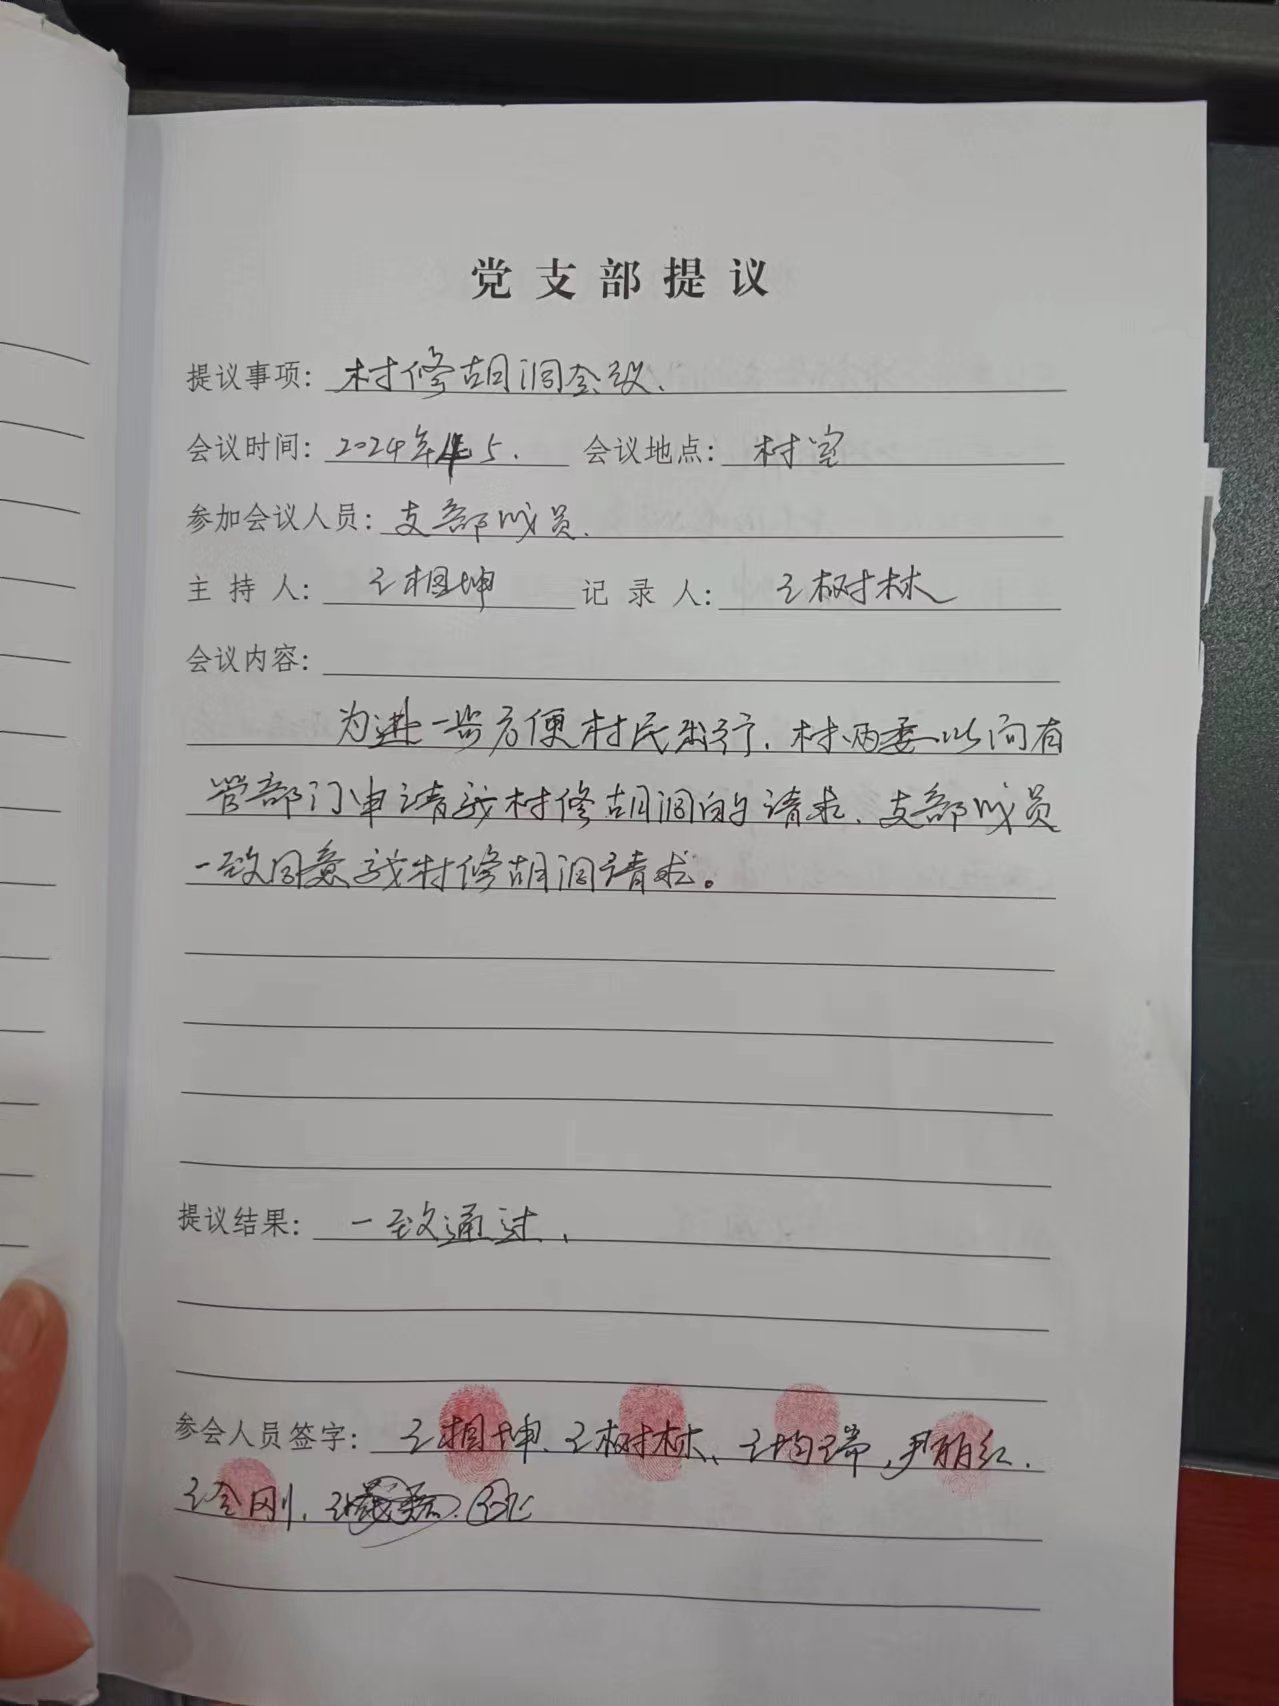 党支部提议
提议事项：村修胡洞会议.
会议时间：2024年4.5. 会议地点：村室
参加会议人员：支部成员.
主持人：王相坤 记录人：王树林
会议内容：
为进一步方便村民出行，村两委以向有
管部门申请我村修胡洞的请求，支部成员
一致同意我村修胡洞请求。
提议结果：一致通过.
参会人员签字：王相坤、王树林、王均瑞，尹丽红.
王金刚.